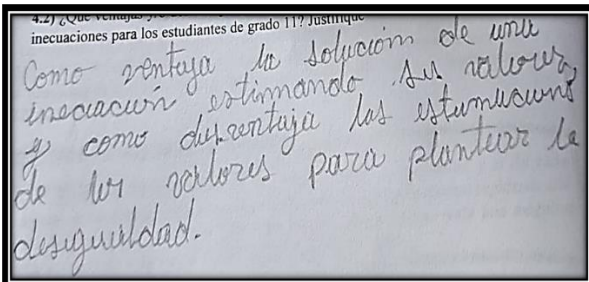 4.2) ¿Qué ventajas y/o
inecuaciones para los estudiantes de grado 11? Justifique
Como ventaja la solución de una
inecuación estimando sus valores,
y como desventaja las estimacions
de los valores para plantear la
desigualdad.